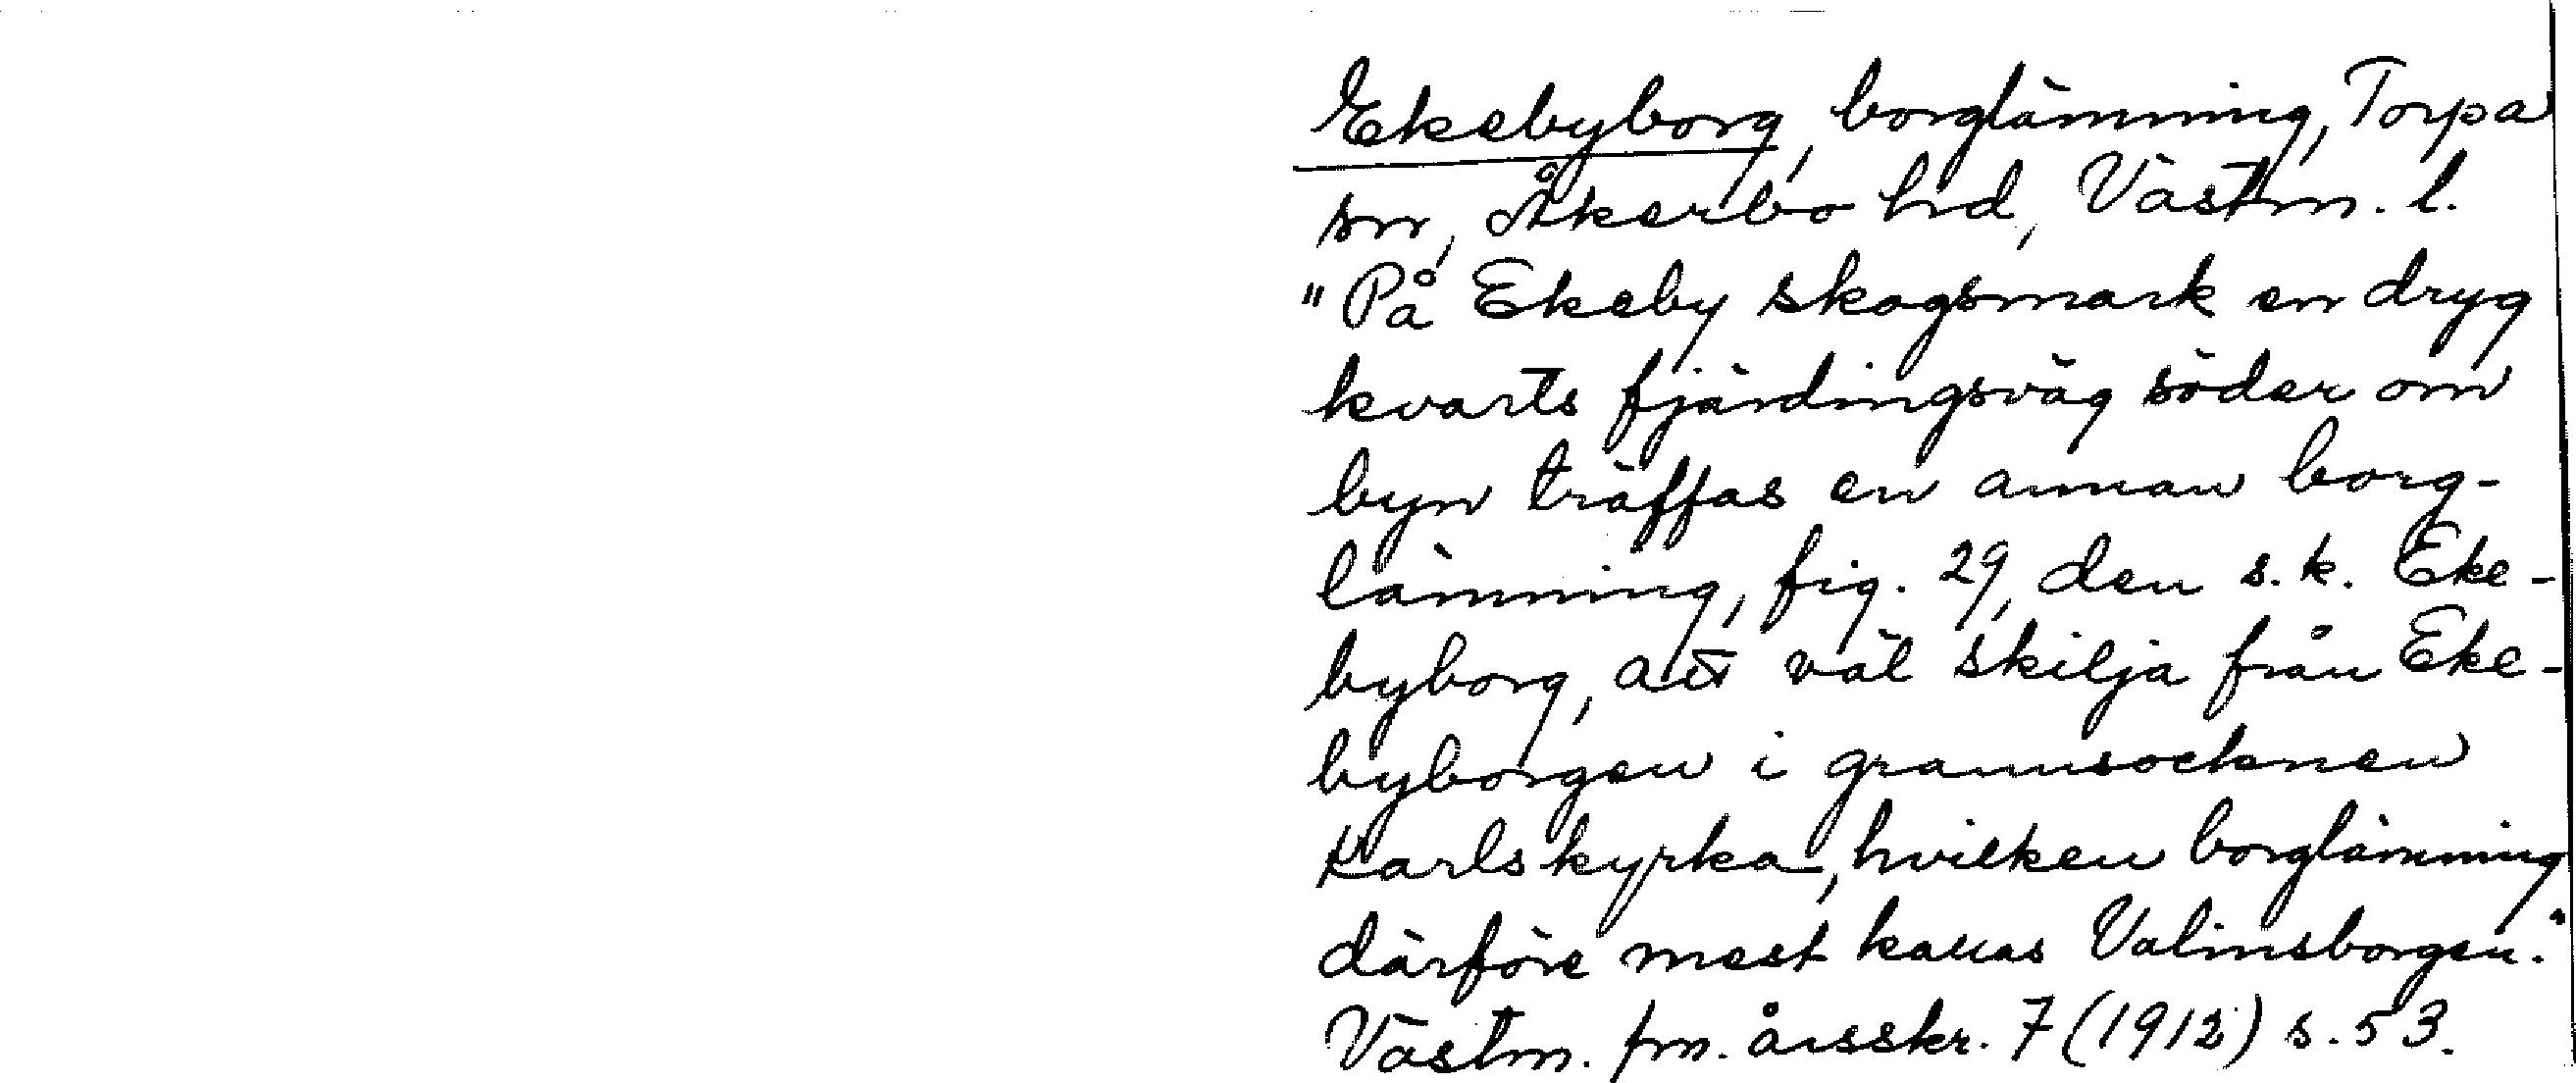 Ekebyborg, borglämning, Torpa
sn, Åkerbo hd, Västm. l.
"På Ekeby skogsmark en dryg
kvarts fjärdingsväg söder om
byn träffas en annan borg-
lämning, fig. 29, den s.k. Eke-
byborg, att väl skilja från Eke-
byborgen i grannsocknen
Karlskyrka, hvilken borglämning
därföre mest kallas Valinsborgen."
Västm. fm. årsskr. 7 (1912) s. 53.